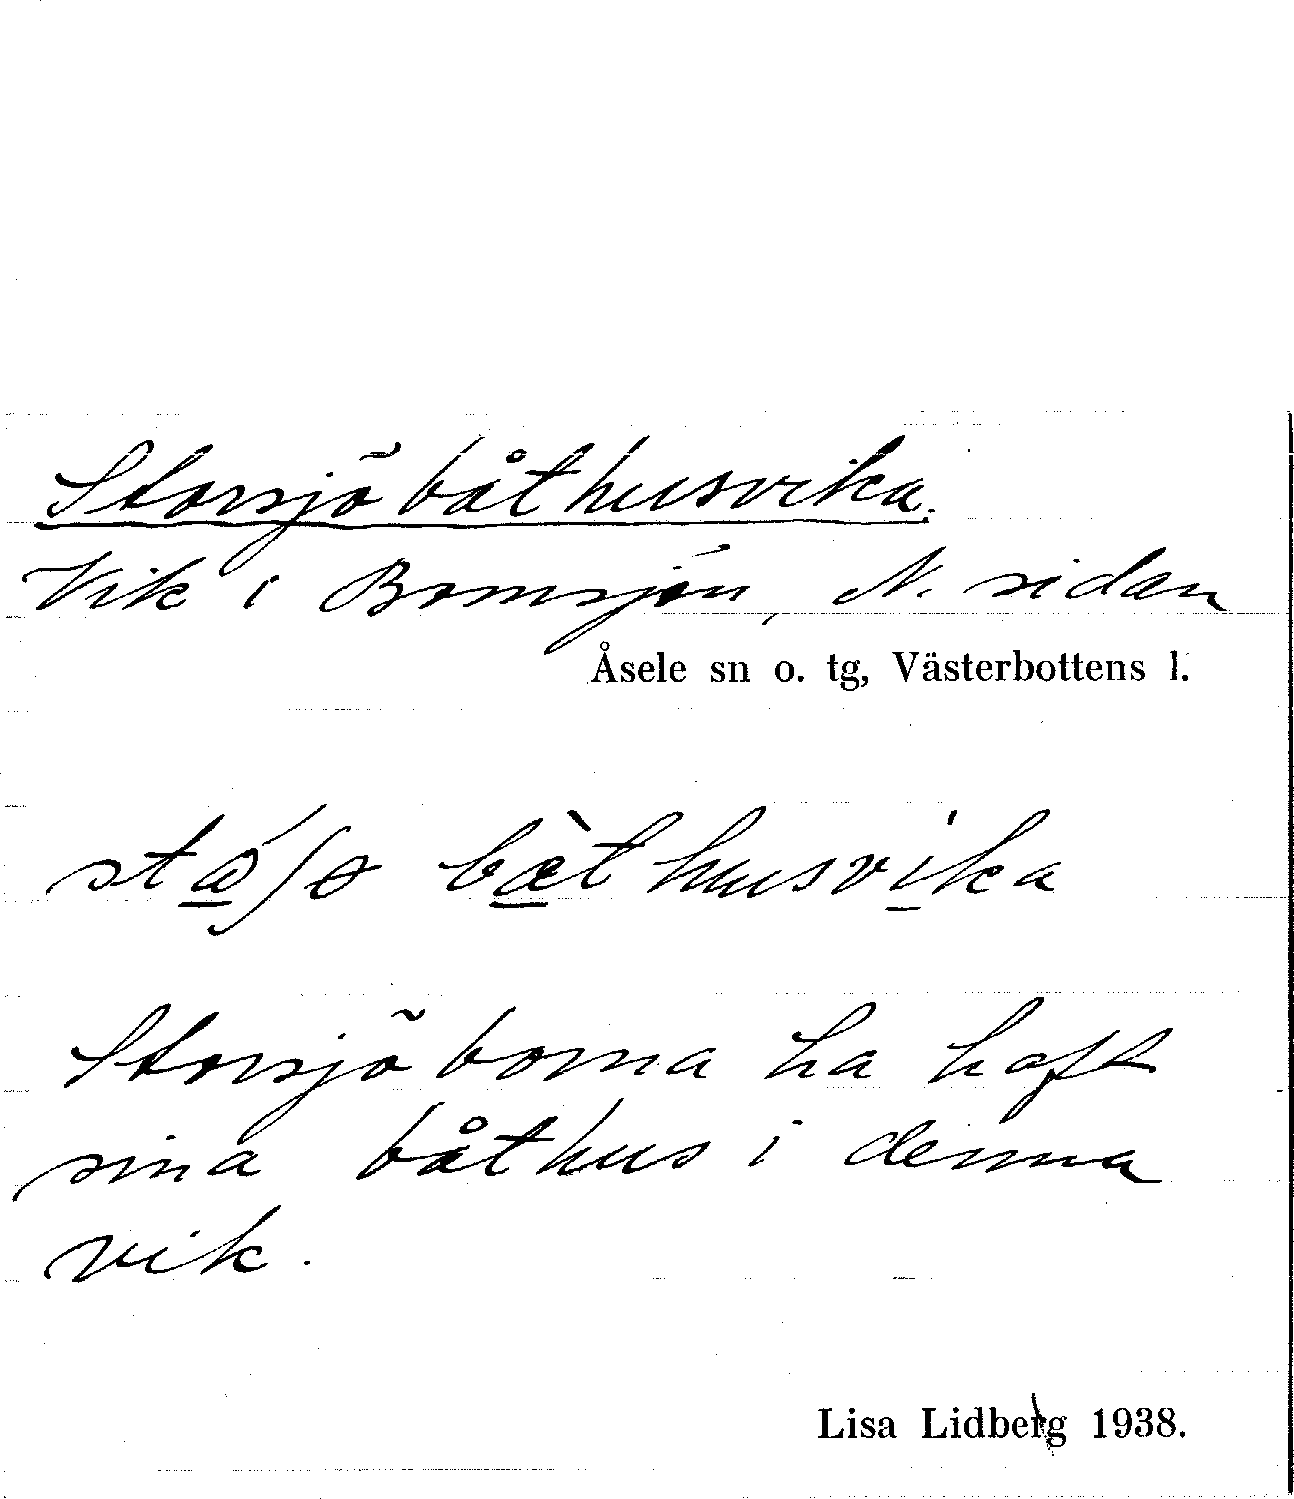 Storsjöbåthusvika.
Vik i Bomsjön, N. sidan
Åsele sn o. tg, Västerbottens l.
bathusvika
Storsjöborna ha haft
sina båthus i denna
vik.
Lisa Lidberg 1938.